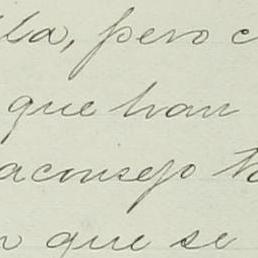 lla, pero c
que han
aconsejo t
que se